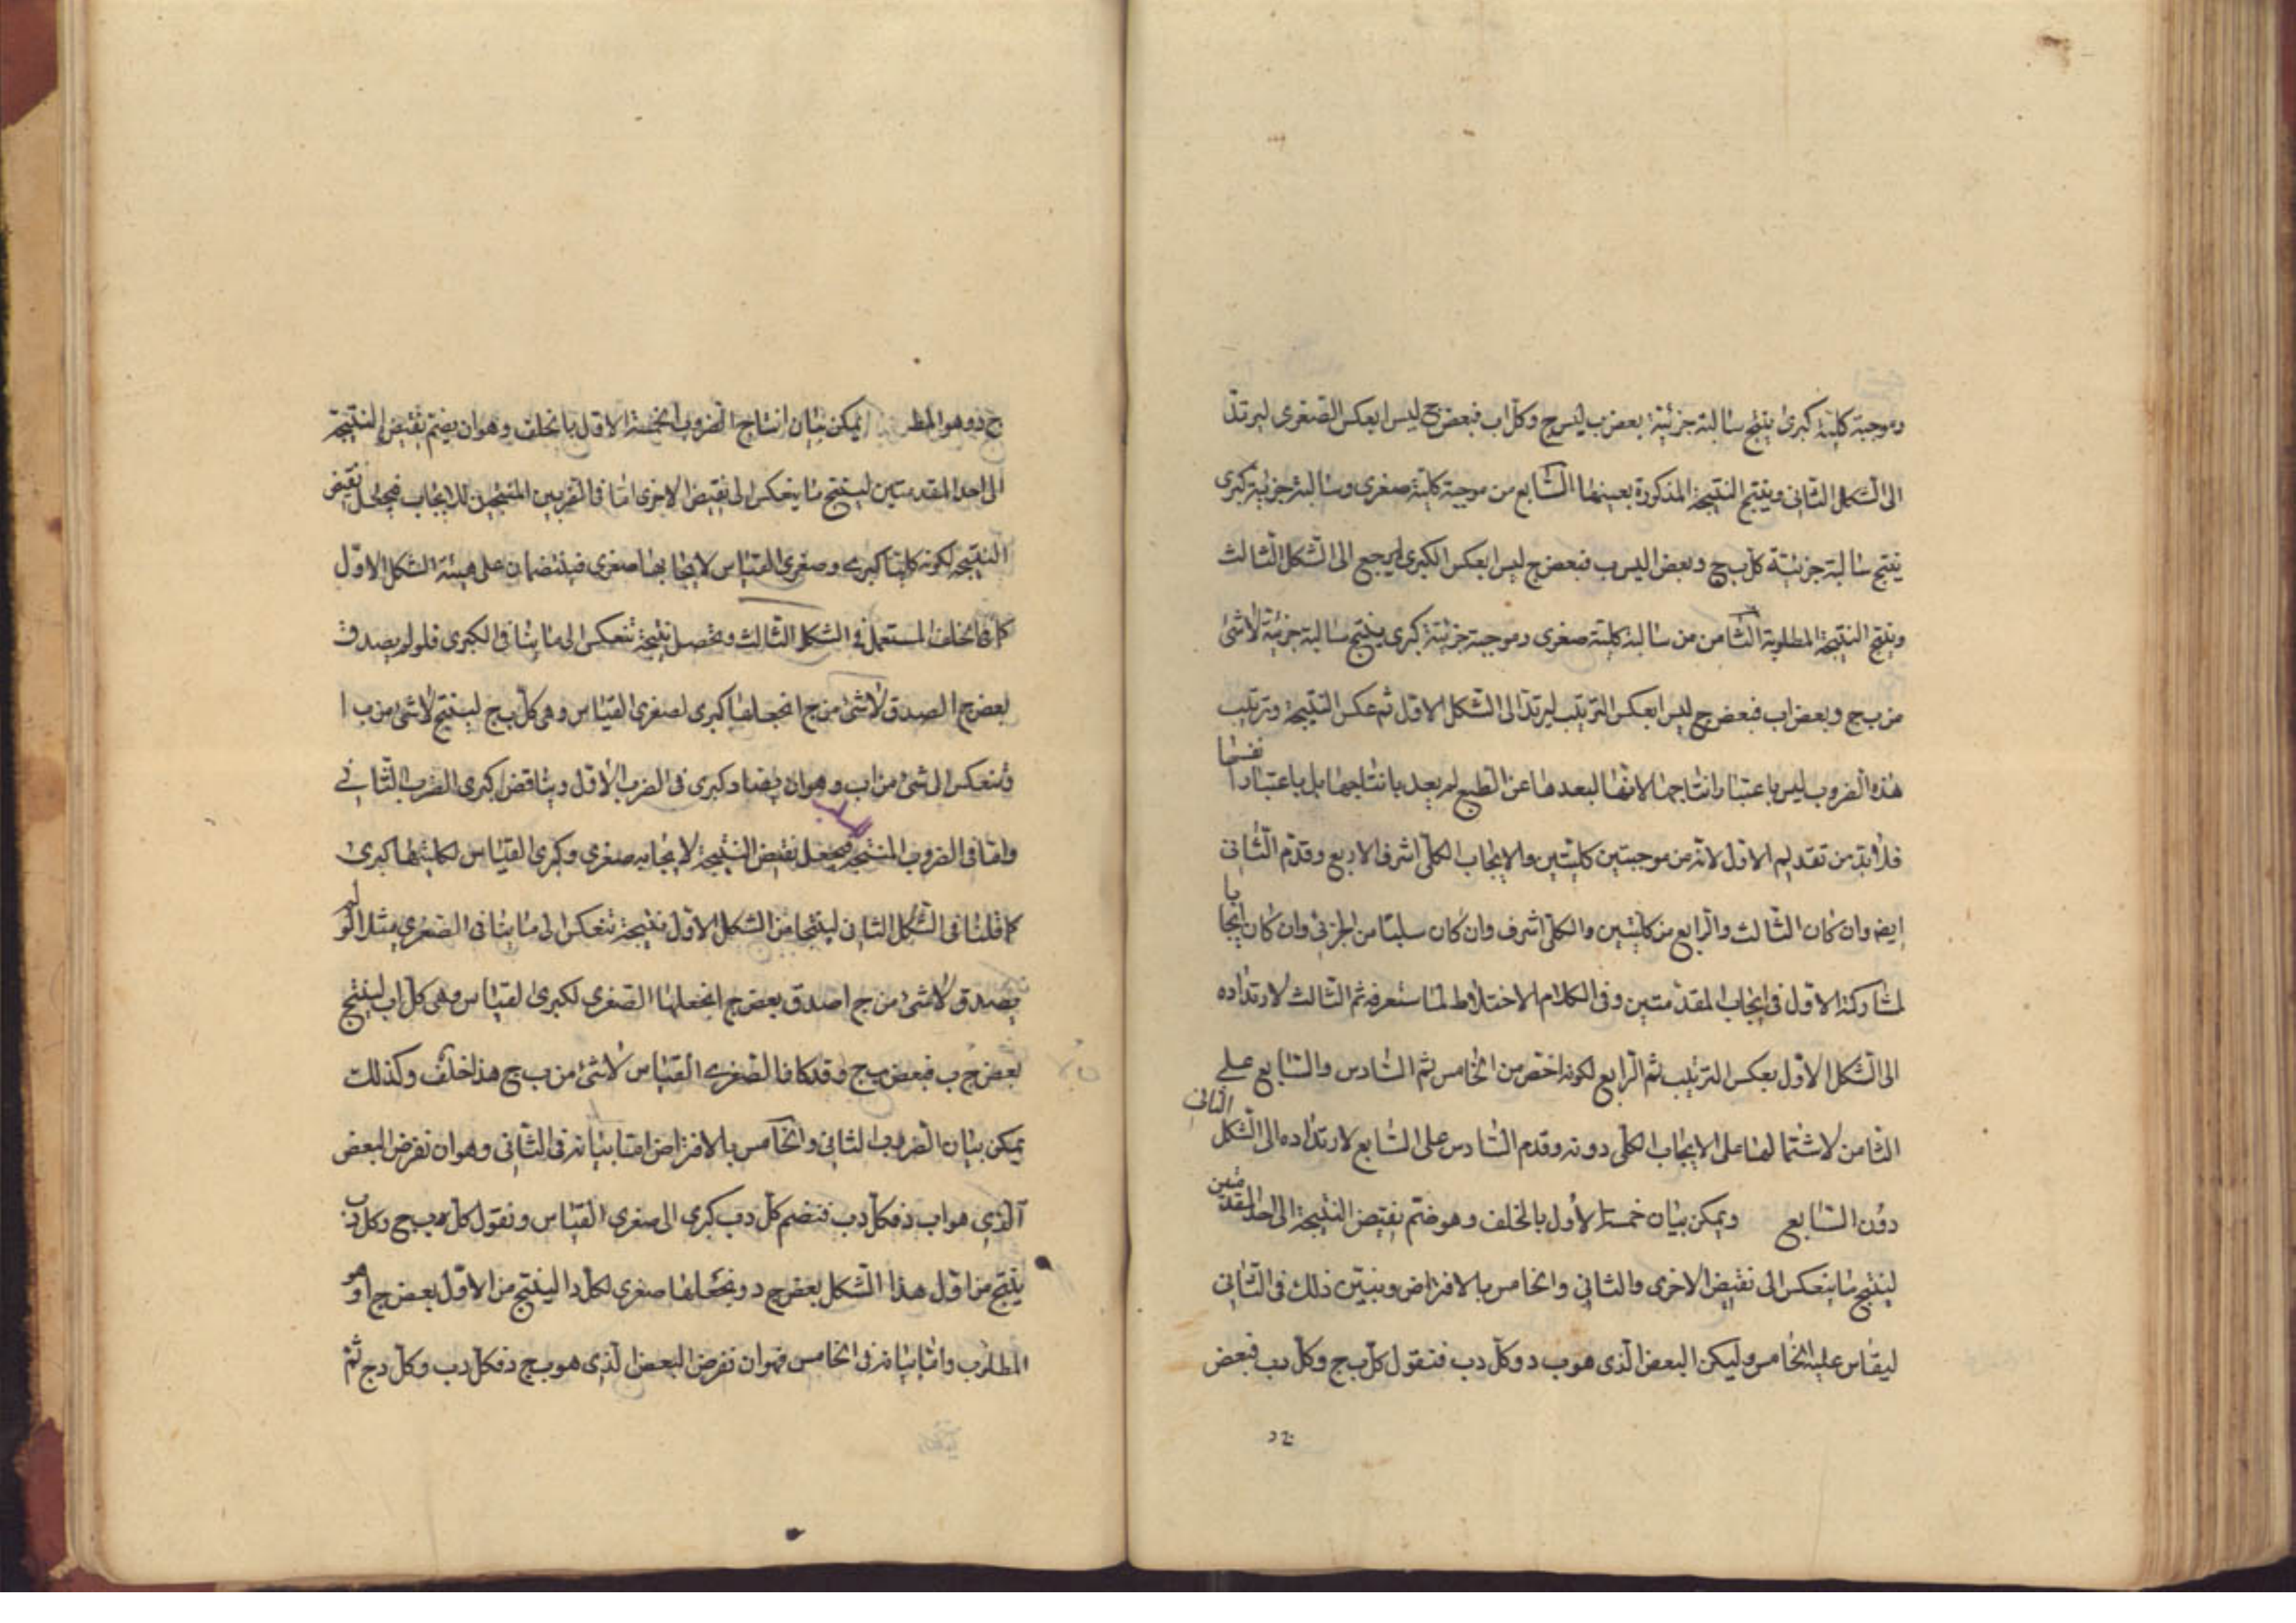 وموجبة كلية كبرى ينتج سالبة جزئية بعض ب ليس ج وكل اب فبعض ج ليس ا بعكس الصغرى ليرتد
الى الشكل الثانى وينتج النتيجة المذكورة بعينها السابع من موجبة كلية صغرى وسالبة جزئية كبرى
ينتج سالبة جزئية كل ب ج وبعض ا ليس ب فبعض ج ليس ا بعكس الكبرى ليرجع الى الشكل الثالث
وينتج النتيجة المطلوبة الثامن من سالبة كلية صغرى وموجبة جزئية كبرى ينتج سالبة جزئية لاشئ
من ب ج وبعض اب فبعض ج ليس ا بعكس الترتيب ليرتد الى الشكل الاول ثم عكس النتيجة وترتيب
هذه الضروب ليس باعتبار انتاجها لانها لبعدها عن الطبع لم يعد بانتاجها بل باعتبار انفسها
فلا بد من تقديم الاول لانه من موجبتين كليتين والايجاب الكلى اشرف الاربع وقدم الثانى
ايضه وان كان الثالث والرابع من كليتين والكلى اشرف وان كان سلبا من الجزئى وان كان ايجابا
لمشاركته الاول فى ايجاب المقدمتين وفى الكلام الاختلاط لما ستعرفه ثم الثالث لارتداده
الى الشكل الاول بعكس الترتيب ثم الرابع لكونه اخص من الخامس ثم السادس والسابع على
الثامن لاشتمالهما على الايجاب الكلى دونه وقدم السادس على السابع لارتداده الى الشكل الثانى
دون السابع ويمكن بيان خمسة الاول بالخلف وهو ضم نقيض النتيجة الى احد المقدمتين
لينتج ما ينعكس الى نقيض الاخرى والثانى والخامس بالافتراض ونبين ذلك فى الثانى
ليقاس عليه الخامس وليكن البعض الذى هو ب د وكل دب فنقول كل ب ج وكل دب فبعض
ج د وهو المط يمكن بيان انتاج الضروب الخمسة الاول بالخلف وهو ان يضم نقيض النتيجة
الى احد المقدمتين لينتج ما ينعكس الى نقيض الاخرى اما فى الضربين المنتجين للايجاب فيجعل نقيض
النتيجة لكونه كليا كبرى وصغرى القياس لايجابها صغرى فينتضمان على هيئة الشكل الاول
كما فى الخلف المستعمل فى الشكل الثالث ويحصل نتيجة تنعكس الى ما ينافى الكبرى فلو لم يصدق
بعض ج ا لصدق لاشئ من ج ا نجعلها كبرى لصغرى القياس وهى كل ب ج لينتج لاشئ من ب ا
وتنعكس الى شئ من اب وهو ان يضاد كبرى فى الضرب الاول ويناقض كبرى الضرب الثانى
واما فى الضروب المنتجة للسلب فيجعل نقيض النتيجة لايجابه صغرى وكبرى القياس لكليتها كبرى
كما قلنا فى الشكل الثانى لينتجا من الشكل الاول نتيجة تنعكس الى ما ينافى الصغرى مثلا لو لم
يصدق لاشئ من ج ا صدق بعض ج ا نجعلها الصغرى لكبرى القياس وهى كل اب لينتج
بعض ج ب فبعض ب ج وقد كانا لصغرى القياس لاشئ من ب ج هذا خلف وكذلك
يمكن بيان الضرب الثانى والخامس بالافتراض اما بيانه فى الثانى وهو ان نفرض البعض
الذى هو اب د فكل دب فنضم كل دب كبرى الى صغرى القياس ونقول كل ب ج وكل دب
ينتج من اول هذا الشكل بعض ج د ونجعلها صغرى لكل دا لينتج من الاول بعض ج ا وهو
المطلوب واما بيانه فى الخامس فهو ان نفرض البعض الذى هو ب ج د فكل دب وكل دج ثم